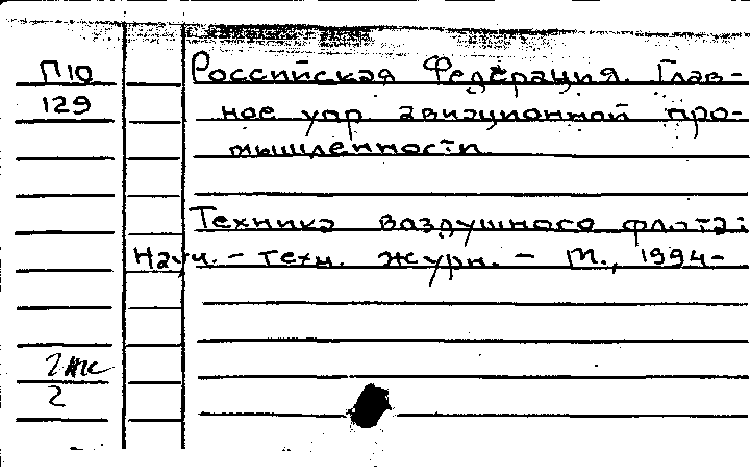 П10
129
Российская Федерация. Глав-
ное упр. авиационной про-
мышленности
Техника воздушного флота:
Науч. - техн. журн. - М., 1994-
2